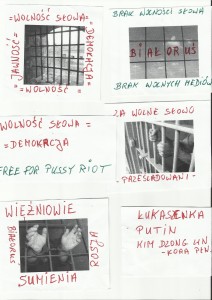 WOLNOŚĆ SŁOWA =
= DEMOKRACJA
JAWNOŚĆ =
= WOLNOŚĆ
BRAK WOLNOŚCI SŁOWA
BIAŁORUŚ
BRAK WOLNYCH MEDIÓW
WOLNOŚĆ SŁOWA =
= DEMOKRACJA
FREE FOR PUSSY RIOT
ZA WOLNE SŁOWO
- PRZEŚLADOWANI -
WIĘŹNIOWIE
BIAŁORUŚ
ROSJA
SUMIENIA
ŁUKASZENKA
PUTIN
KIM DZONG UN